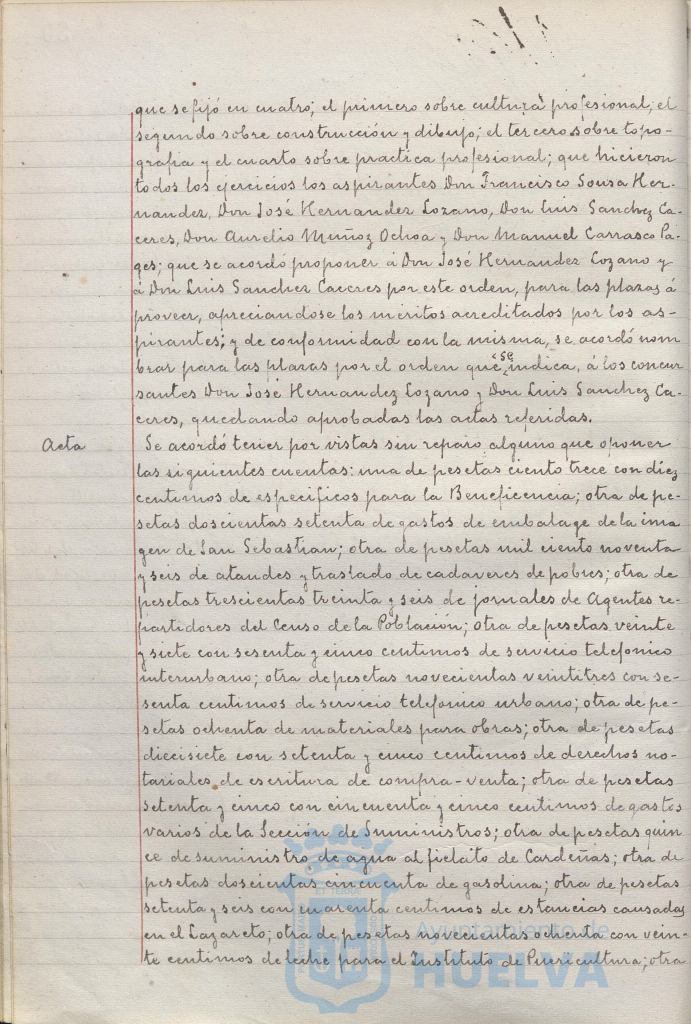 que se fijó en cuatro; el primero sobre cultura profesional; el
segundo sobre construcción y dibujo; el tercero sobre topo-
grafia y el cuarto sobre practica profesional; que hicieron
todos los ejercicios los aspirantes Don Francisco Sousa Her-
nandez, Don José Hernandez Lozano, Don Luis Sanchez Ca-
ceres, Don Aurelio Muñoz Ochoa y Don Manuel Carrasco Pa-
ges; que se acordó proponer á Don José Hernandez Lozano y
á Don Luis Sanchez Caceres por este orden, para las plazas á
proveer, apreciandose los meritos acreditados por los as-
pirantes; y de conformidad con la misma, se acordó nom
brar para las plazas por el orden que se indica, á los concur
santes Don José Hernandez Lozano y Don Luis Sanchez Ca-
ceres, quedando aprobadas las actas referidas.
Acta
Se acordó tener por vistas sin reparo alguno que oponer
las siguientes cuentas: una de pesetas ciento trece con diez
centimos de especificos para la Beneficencia; otra de pe-
setas doscientas setenta de gastos de embalage de la ima
gen de San Sebastian; otra de pesetas mil ciento noventa
y seis de ataudes y traslado de cadaveres de pobres; otra de
pesetas trescientas treinta y seis de jornales de Agentes re-
partidores del Censo de la Población; otra de pesetas veinte
y siete con sesenta y cinco centimos de servicio telefonico
interurbano; otra de pesetas novecientas veintitres con se-
senta centimos de servicio telefonico urbano; otra de pe-
setas ochenta de materiales para obras; otra de pesetas
diecisiete con setenta y cinco centimos de derechos no-
tariales de escritura de compra-venta; otra de pesetas
setenta y cinco con cincuenta y cinco centimos de gastos
varios de la Sección de Suministros; otra de pesetas quin
ce de suministro de agua al fielato de Cardeñas; otra de
pesetas doscientas cincuenta de gasolina; otra de pesetas
setenta y seis con cuarenta centimos de estancias causadas
en el Lazareto; otra de pesetas novecientas ochenta con vein-
te centimos de leche para el Instituto de Puericultura; otra
Ayuntamiento de
HUELVA